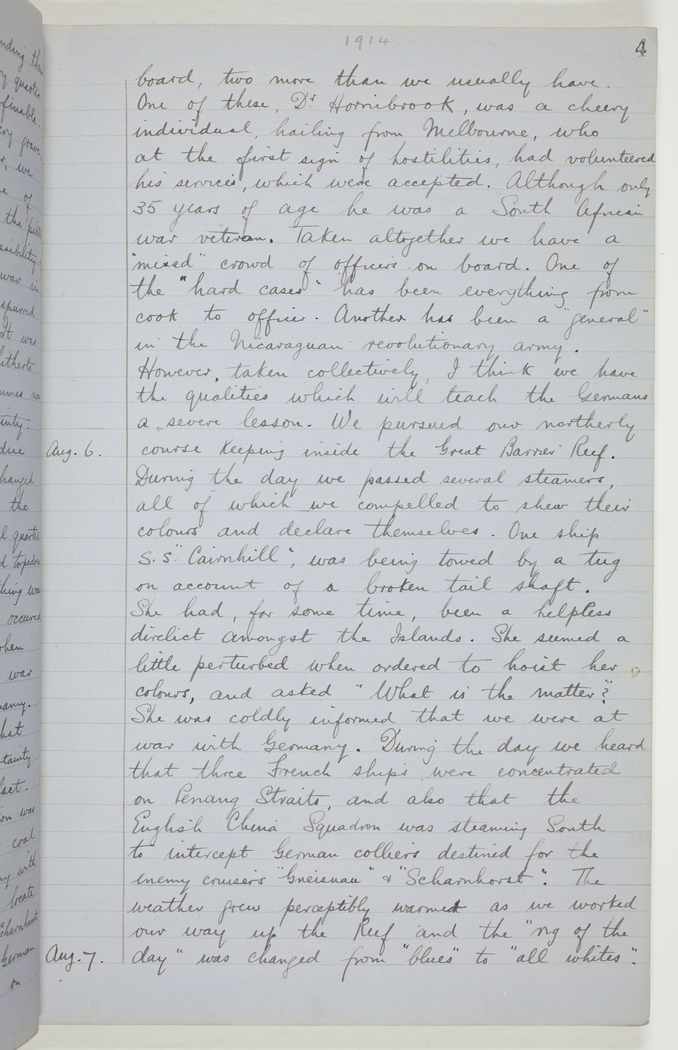 1914.
4
board, two more than we usually have.
One of these, Dr Hornibrook, was a cheery
individual, hailing from Melbourne, who
at the first sign of hostilities, had volunteered
his services, which were accepted. Although only
35 years of age he was a South African
war veteran. Taken altogether we have a
"mixed" crowd of officers on board. One of
the "hard cases" has been everything from
cook to officer. Another has been a "general"
in the Nicaraguan revolutionary army.
However, taken collectively, I think we have
the qualities which will teach the Germans
a severe lesson. We pursued our northerly
Aug. 6. course keeping inside the Great Barrier Reef.
During the day we passed several steamers,
all of which we compelled to shew their
colours and declare themselves. One ship
S.S. "Cairnhill", was being towed by a tug
on account of a broken tail shaft.
She had, for some time, been a helpless
direlict amongst the Islands. She seemed a
little perturbed when ordered to hoist her
colours, and asked "What is the matter"?
She was coldly informed that we were at
war with Germany. During the day we heard
that three French ships were concentrated
on Penang Straits, and also that the
English China Squadron was steaming South
to intercept German colliers destined for the
enemy cruisers "Gneisnau" & "Scharnhorst". The
weather grew perceptibly warmer as we worked
our way up the Reef and the "rig of the
Aug. 7. day" was changed from "blues" to "all whites".